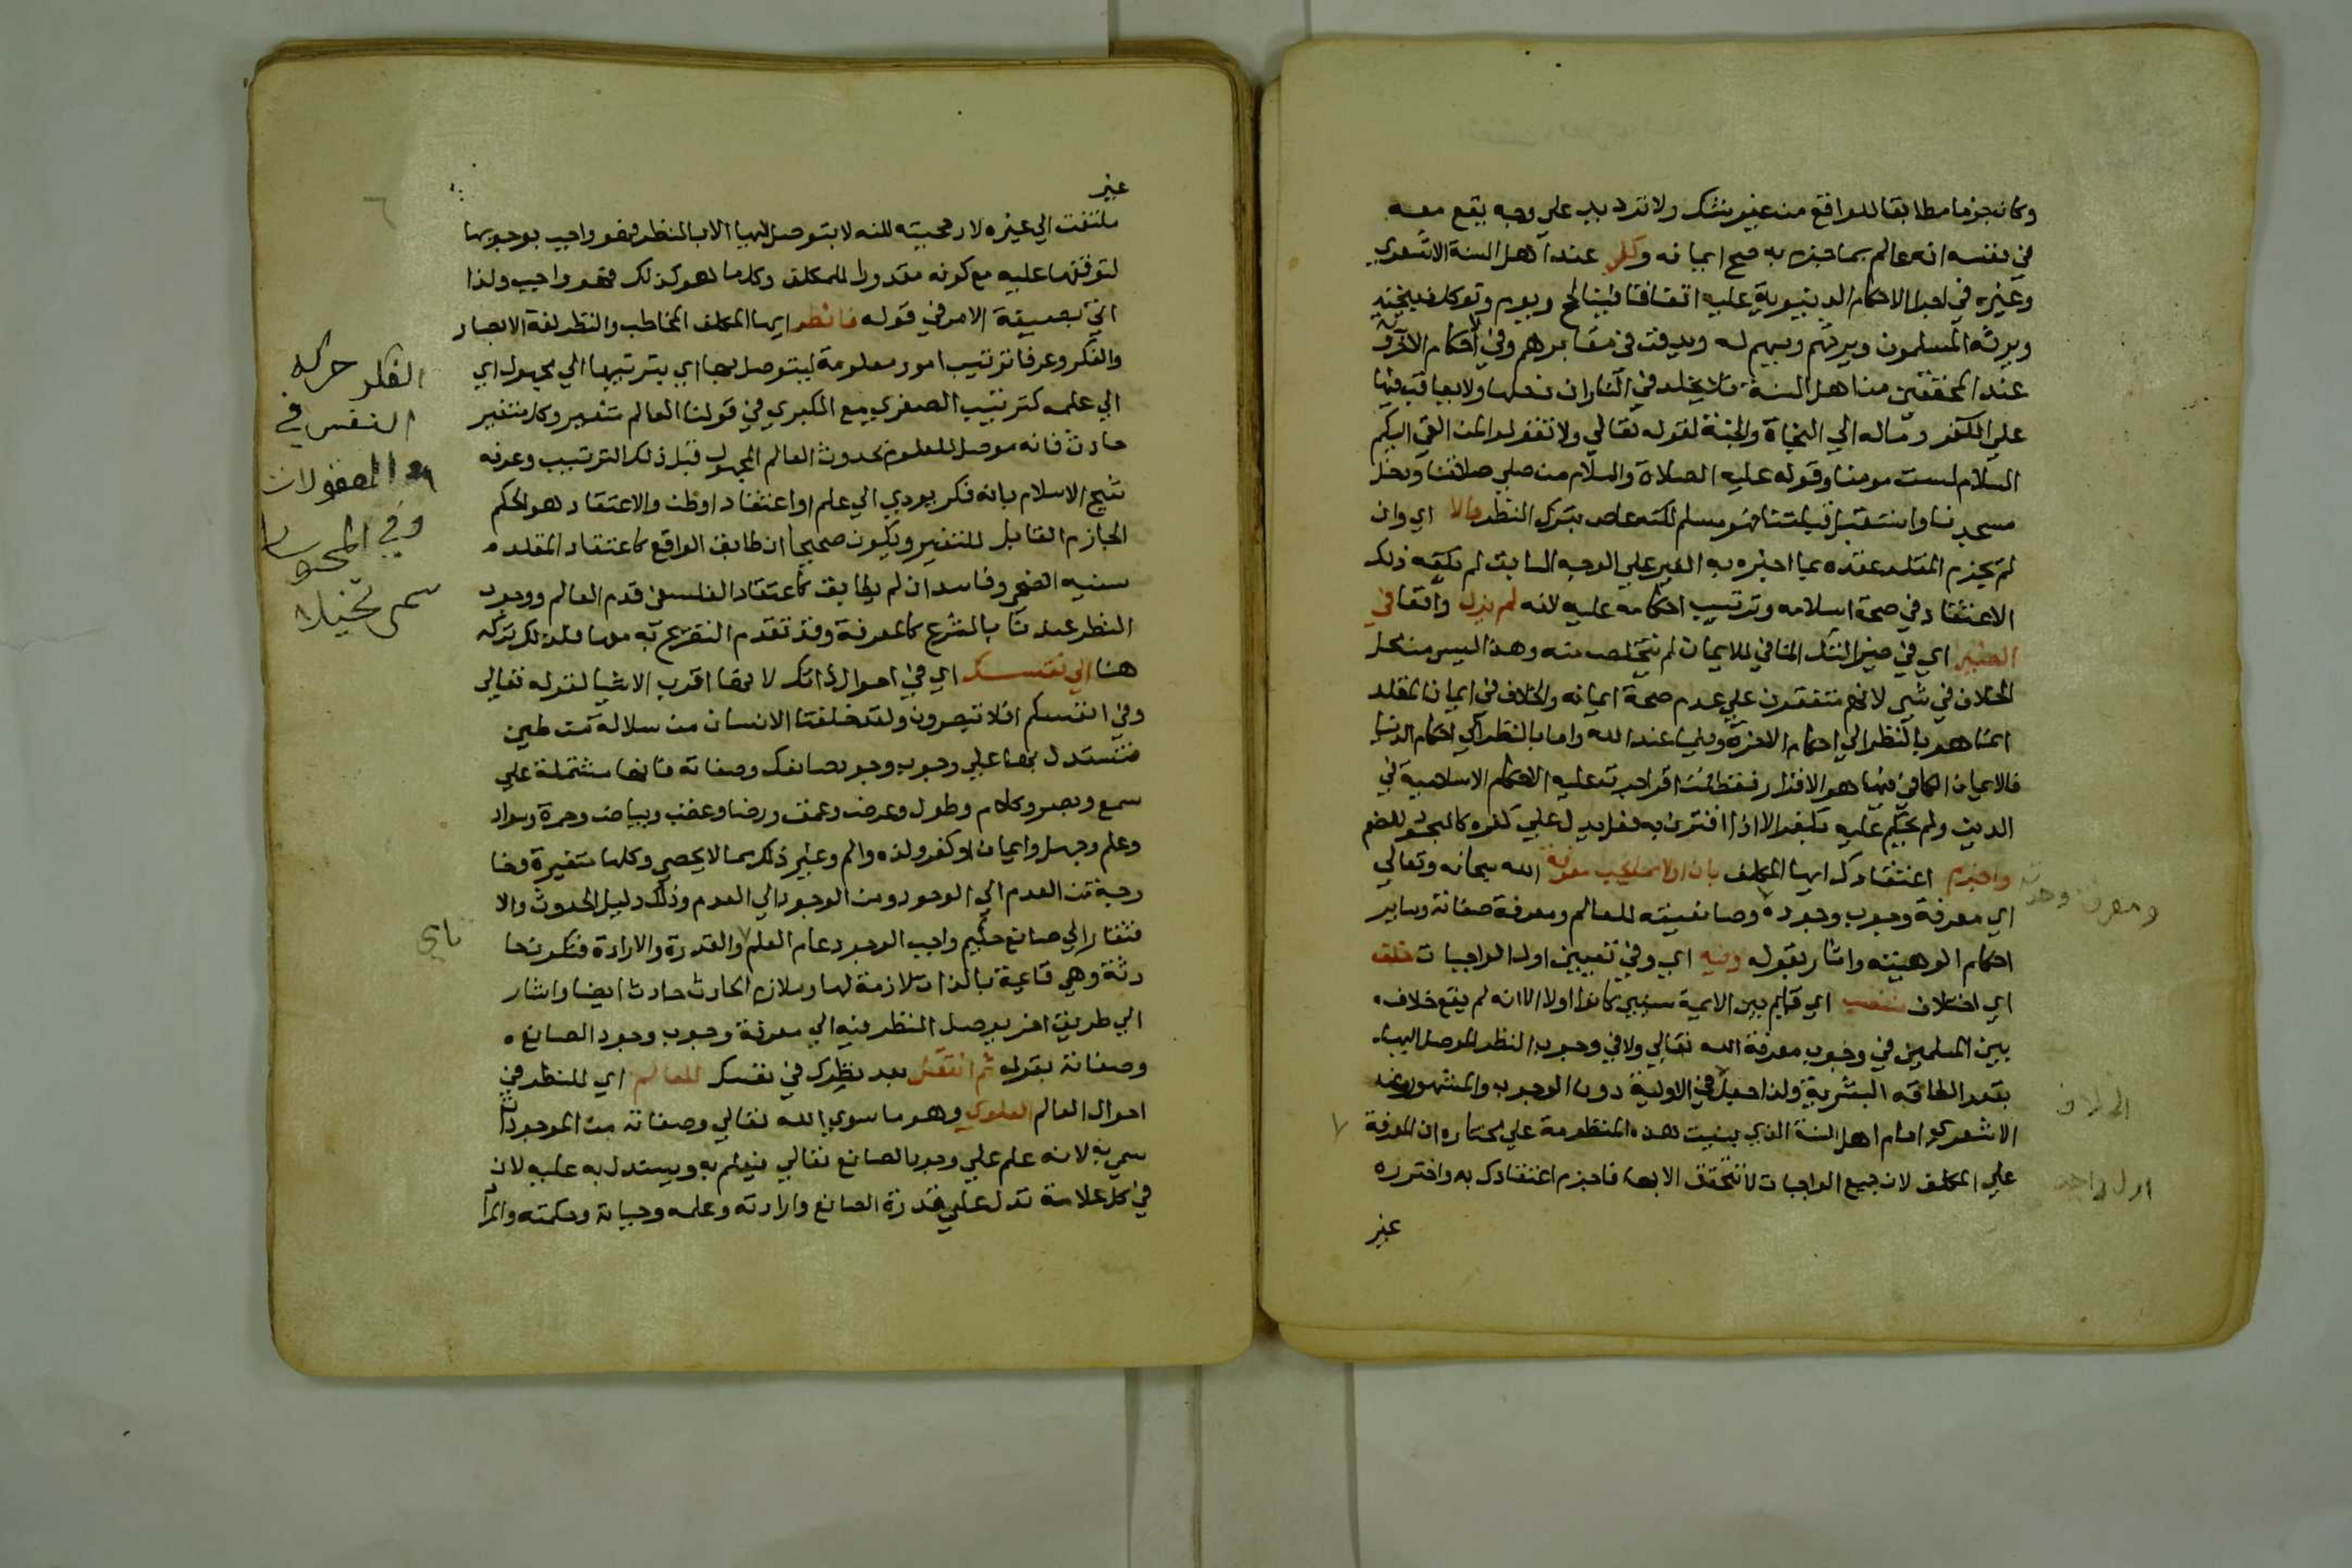 وكان جزما مطابقا للواقع من غير شك ولا تردد بل على وجه يقع معه
في نفسه انه عالم بما جزم به صح ايمانه وكفى عند اهل السنة الاشعري
وغيره في اجرا الاحكام الدنيوية عليه اتفاقا فيناكح ويؤم وتوكل ذبيحته
ويرثه المسلمون ويرثهم ويسهم له ويدفن في مقابرهم وفي احكام الاخرة
عند المحققين من اهل السنة فلا يخلد في النار ان دخلها ولا يعاقب فيها
على الكفر ومآله الي النجاة والجنة لقوله تعالي ولا تقولوا لمن القي اليكم
السلام لست مومنا وقوله عليه الصلاة والسلام من صلي صلاتنا ودخل
مسجدنا واستقبل قبلتنا فهو مسلم لكنه عاص بترك النظر والا اي وان
لم يجزم المقلد عقده بما اخبره به الغير علي الوجه السابق لم يكفه ذلك
الاعتقاد في صحة اسلامه وترتيب احكامه عليه لانه لم يزل واقعا في
الضير اي في ضير الشك المنافي للايمان لم يتخلص منه وهذا ليس من محل
الخلاف في شي لانهم متفقون علي عدم صحة ايمانه والخلاف في ايمان المقلد
انما هو بالنظر الي احكام الاخرة وفيما عند الله واما بالنظر الي احكام الدنيا
فالايمان الكافي فيها هو الاقرار فقط فمن اقر اجريت عليه الاحكام الاسلامية في
الدين ولم يحكم عليه بكفر الا اذا اقترن به فعل يدل علي كفره كالسجود للصنم
واجزم اعتقادك ايها المكلف بان اولا مما يجب معرفة الله سبحانه وتعالي
اي معرفة وجوب وجوده وصانعيته للعالم ومعرفة صفاته وساير
احكام الوهيته واشار بقوله وفيه اي وفي تعيين اول الواجبات خلف
اي اختلاف منتصب اي قايم بين الايمة سنيين كانوا اولا الا انه لم يقع خلاف
بين المسلمين في وجوب معرفة الله تعالي ولا في وجوب النظر الموصل اليها
بقدر الطاقة البشرية ولذا جعل في الاولية دون الوجوب والمشهور عند
الاشعري امام اهل السنة الذي بنيت هذه المنظومة علي مختاره ان المعرفة
علي المكلف لان جميع الواجبات لا تتحقق الا بها فاجزم اعتقادك به واخترره
غير
ومعرفة وحدته
الخلاف
اول واجب
غير
ملتفت الي غيره لارجحيته لكنه لا يتوصل اليها الا بالنظر فهو واجب بوجوبها
لتوقفها عليه مع كونه مقدورا للمكلف وكلما هو كذلك فهو واجب ولذا
اتي بصيغة الامر في قوله فانظر ايها المكلف المخاطب والنظر لغة الابصار
والفكر وعرفا ترتيب امور معلومة ليتوصل بها اي بترتيبها الي مجهول اي
الي علمه كترتيب الصغري مع الكبري في قولنا العالم متغير وكل متغير
حادث فانه موصل للعلم بحدوث العالم المجهول قبل ذلك الترتيب وعرفه
شيخ الاسلام بانه فكر يودي الي علم او اعتقاد او ظن والاعتقاد هو الحكم
الجازم القابل للتغير ويكون صحيحا ان طابق الواقع كاعتقاد المقلد
سنية الضحي وفاسدا ان لم يطابق كاعتقاد الفلسفي قدم العالم ووجوب
النظر عندنا بالشرع كالمعرفة وقد تقدم التصريح به فلذلك تركه
هنا الي نفسك اي في احوال ذاتك لانها اقرب الاشيا لقوله تعالي
وفي انفسكم افلا تبصرون ولقد خلقنا الانسان من سلالة من طين
فتستدل بها علي وجوب وجود صانعك وصفاته فانها مشتملة علي
سمع وبصر وكلام وطول وعرض وعمق ورضا وغضب وبياض وحمرة وسواد
وعلم وجهل وايمان او كفر ولذه والم وغير ذلك مما لا يحصي وكلها متغيرة وخا
رجة من العدم الي الوجود ومن الوجود الي العدم وذلك دليل الحدوث والا
فتقار الي صانع حكيم واجب الوجود عام العلم والقدرة والارادة فتكون حا
دثة وهي قايمة بالذات لازمة لها وملازم الحادث حادث ايضا واشار
الي طريق اخر يوصل النظر فيه الي معرفة وجوب وجود الصانع
وصفاته بقوله ثم انتقل بعد نظرك في نفسك للعالم اي للنظر في
احوال العالم العلوي وهو ما سوي الله تعالي وصفاته من الموجودات
سمي به لانه علم علي وجود الصانع تعالي فيعلم به ويستدل به عليه لان
في كل علامة تدل علي قدرة الصانع وارادته وعلمه وحياته وحكمته والمرا
الفكر حركة
النفس في
المعقولات
وفي المحسوسات
سمي تخييلا
باي